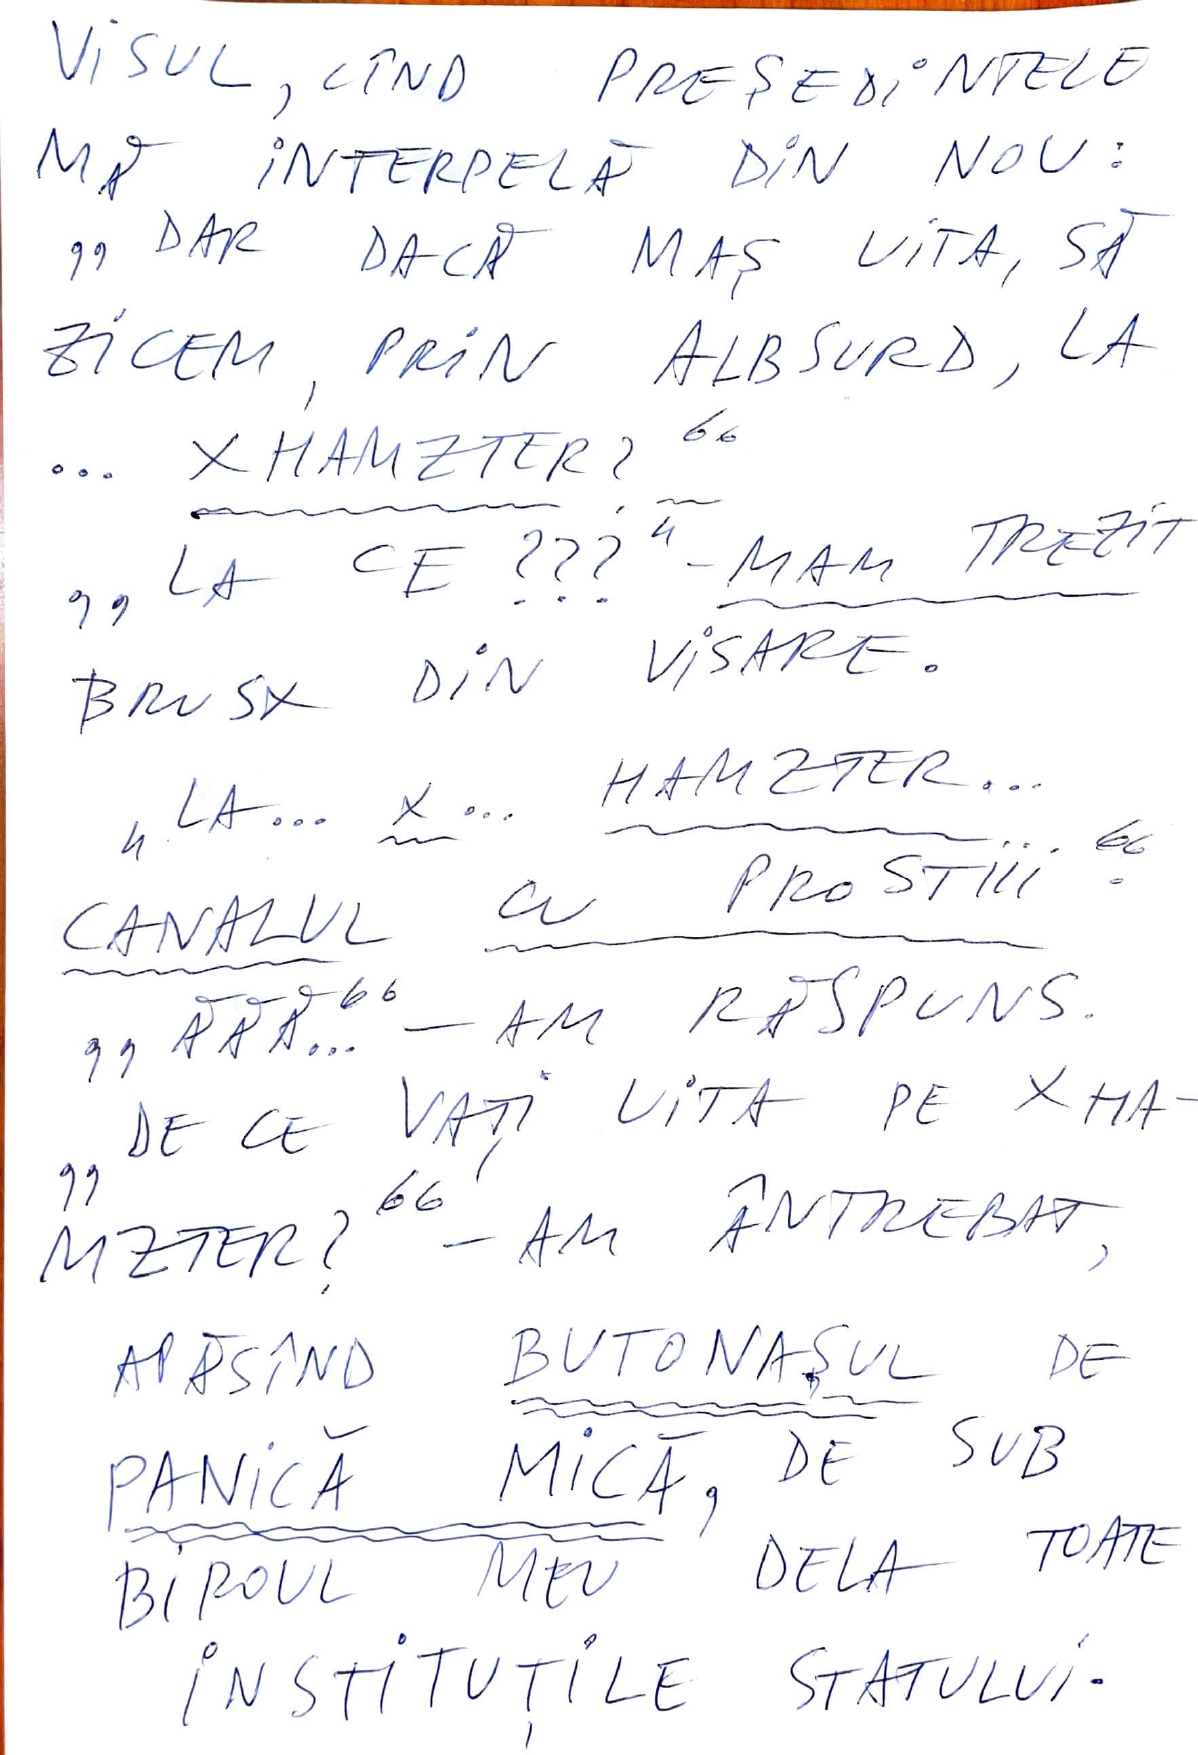 VISUL, CÎND PREȘEDINTELE
MĂ INTERPELĂ DIN NOU:
„DAR DACĂ MAȘ UITA, SĂ
ZICEM, PRIN ALBSURD, LA
... XHAMZTER?“
„LA CE ???“ - MAM TREZIT
BRUSX DIN VISARE.
„LA... X... HAMZTER...
CANALUL CU PROSTIII...“
„ĂĂĂ...“ — AM RĂSPUNS.
„DE CE VAȚI UITA PE XHA-
MZTER?“ — AM ÂNTREBAT,
APĂSÎND BUTONAȘUL DE
PANICĂ MICĂ, DE SUB
BIROUL MEU DELA TOATE
INSTITUȚILE STATULUI.